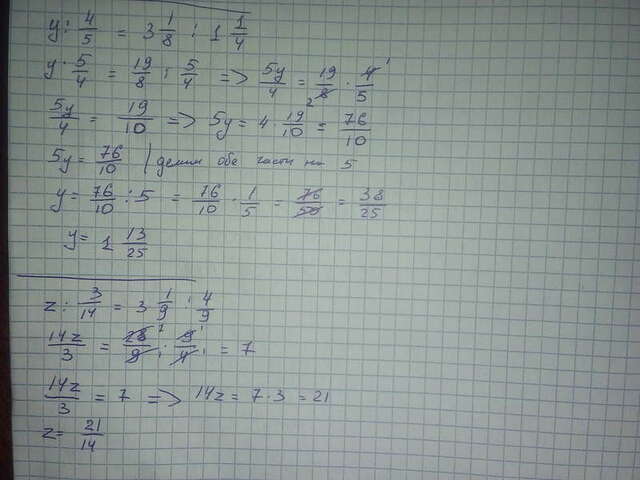 y : 4/5 = 3 1/8 : 1 1/4
y · 5/4 = 19/8 : 5/4 => 5y/4 = 19/8 · 4/5 2 1
5y/4 = 19/10 => 5y = 4 · 19/10 = 76/10
5y = 76/10 | делим обе части на 5
y = 76/10 : 5 = 76/10 · 1/5 = 76/50 = 38/25
y = 1 13/25
z : 3/14 = 3 1/9 : 4/9
14z/3 = 28/9 · 9/4 = 7
14z/3 = 7 => 14z = 7 · 3 = 21
z = 21/14